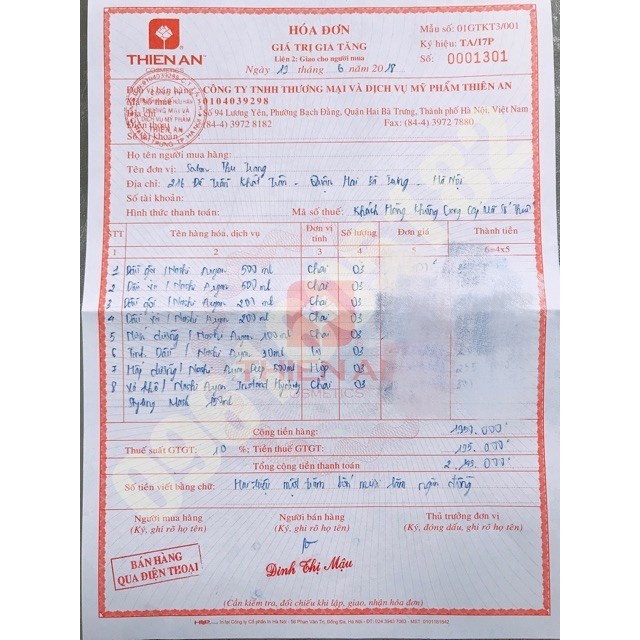 THIEN AN
COSMETICS
HÓA ĐƠN
GIÁ TRỊ GIA TĂNG
Liên 2: Giao cho người mua
Ngày 19 tháng 6 năm 2018
Mẫu số: 01GTKT3/001
Ký hiệu: TA/17P
Số: 0001301
Đơn vị bán hàng: CÔNG TY TNHH THƯƠNG MẠI VÀ DỊCH VỤ MỸ PHẨM THIÊN AN
Mã số thuế: 0104039298
Địa chỉ: Số 94 Lương Yên, Phường Bạch Đằng, Quận Hai Bà Trưng, Thành phố Hà Nội, Việt Nam
Điện thoại: (84-4) 3972 8182 Fax: (84-4) 3972 7880
Số tài khoản:
Họ tên người mua hàng:
Tên đơn vị: Salon Thu Trang
Địa chỉ: 216 Trần Khát Chân - Quận Hai Bà Trưng - Hà Nội
Số tài khoản:
Hình thức thanh toán: Mã số thuế: Khách Hàng Không Cung Cấp Mã Số Thuế
STT Tên hàng hóa, dịch vụ Đơn vị tính Số lượng Đơn giá Thành tiền
1 2 3 4 5 6=4x5
1 Dầu gội / Nashi Argan 500 ml Chai 03
2 Dầu xả / Nashi Argan 500 ml Chai 03
3 Dầu gội / Nashi Argan 200 ml Chai 03
4 Dầu xả / Nashi Argan 200 ml Chai 03
5 dưỡng / Nashi Argan 100 ml Chai 03
6 Tinh Dầu / Nashi Argan 30ml 03
7 dưỡng / Nashi Argan Deep 500ml Hộp 03
8 Xả khô / Nashi Argan Instant Hydrating Chai 03
Styling Mask 150ml
THIEN AN
COSMETICS
Cộng tiền hàng: 1950.000
Thuế suất GTGT: 10 %; Tiền thuế GTGT: 195.000
Tổng cộng tiền thanh toán
Số tiền viết bằng chữ: Hai triệu một trăm bốn mươi lăm ngàn đồng
Người mua hàng Người bán hàng Thủ trưởng đơn vị
(Ký, ghi rõ họ tên) (Ký, ghi rõ họ tên) (Ký, đóng dấu, ghi rõ họ tên)
BÁN HÀNG
QUA ĐIỆN THOẠI
Đinh Thị Mậu
(Cần kiểm tra, đối chiếu khi lập, giao, nhận hóa đơn)